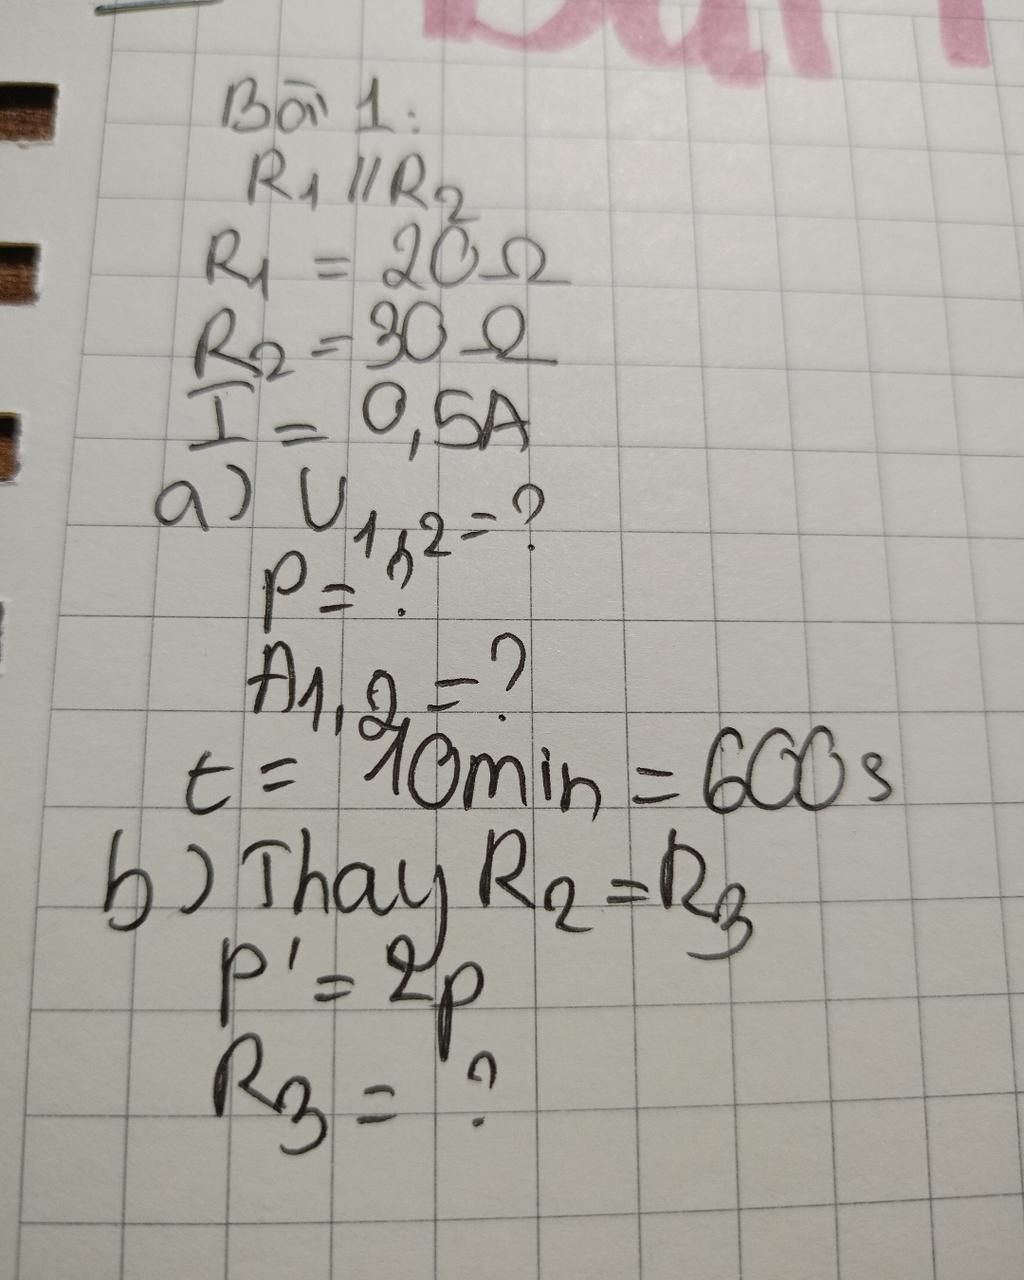 Bài 1:
R1 // R2
R1 = 20Ω
R2 = 30Ω
I = 0,5A
a) U1,2 = ?
P = ?
A1,2 = ?
t = 10min = 600s
b) Thay R2 = R3
P' = 2p
R3 = ?